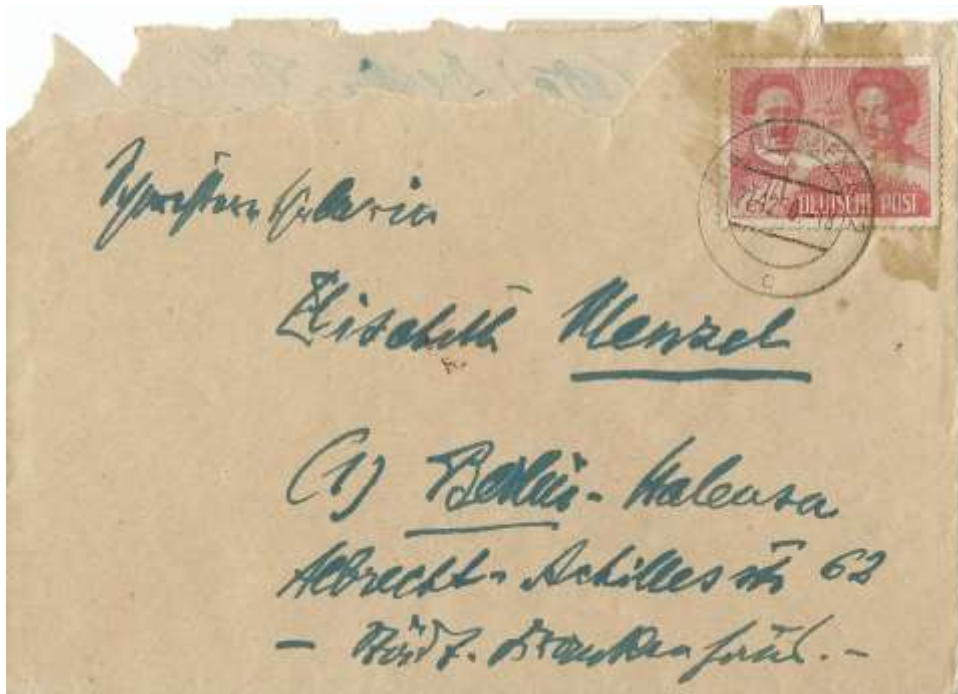 DEUTSCHE POST
Schwesternschülerin
Elisabeth Menzel
(1) Berlin-Halensee
Albrecht-Achillesstr 62
- Städt. Krankenhaus. -